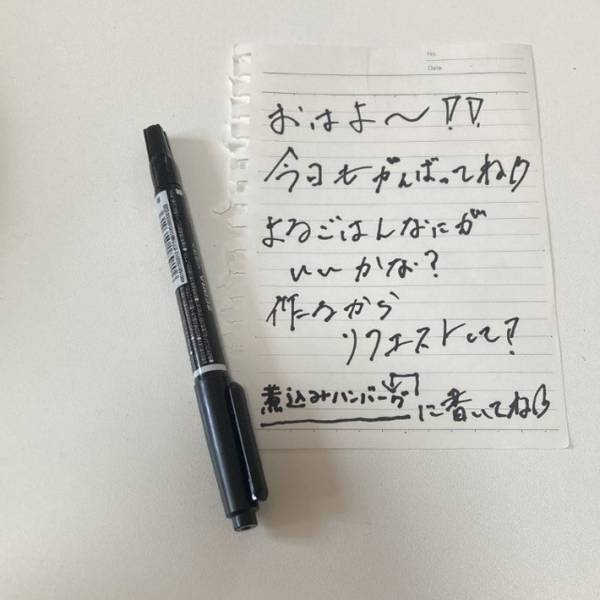 No.
Date
おはよ〜!!
今日もがんばってね♡
よるごはんなにが
いいかな?
作るから
リクエストして!
煮込みハンバーグに書いてね♡